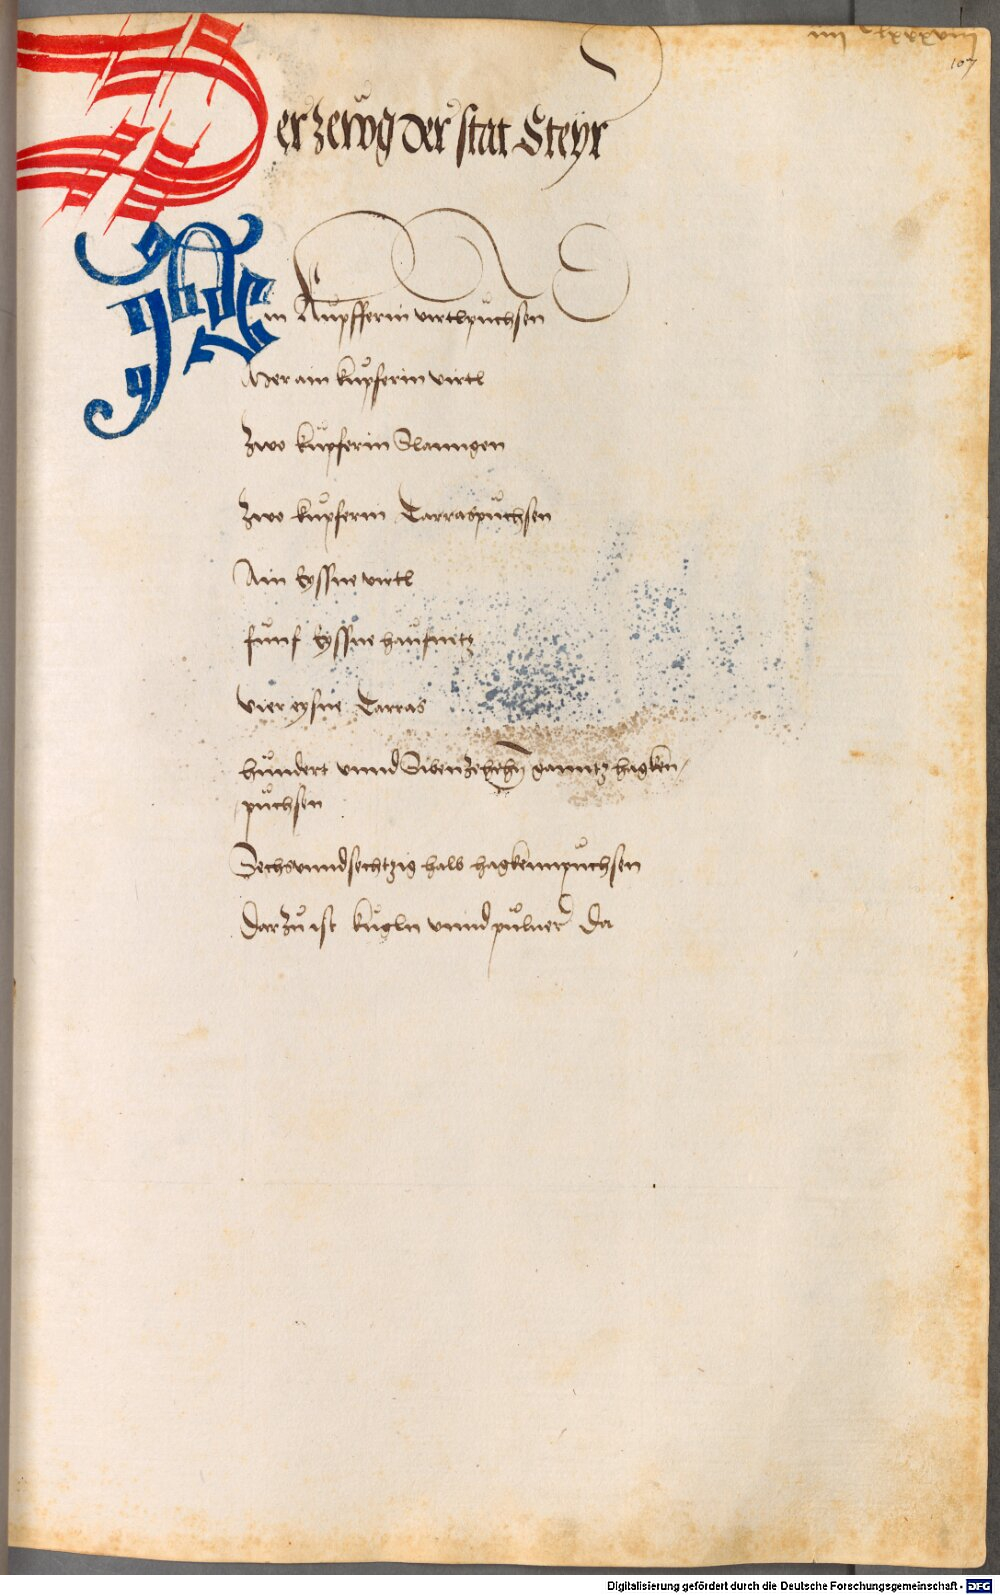 107
Der zeẅg der stat Steyr
Ain Kupfferin virtlpuchsen
Mer ain kupferin virtl
Zwo kupferin Slanngen
Zwo kupferin Tarraspuchsen
Ain Eyssne virtl
funf Eyssne haufnitz
Vier eysne Tarras
hundert vnnd Sibenzehehn ganntz hagken
puchsen
Sechsvnndsechtzig halb hagkennpuchsen
Darzu ist kugln vnnd puluer da
Digitalisierung gefördert durch die Deutsche Forschungsgemeinschaft - DFG